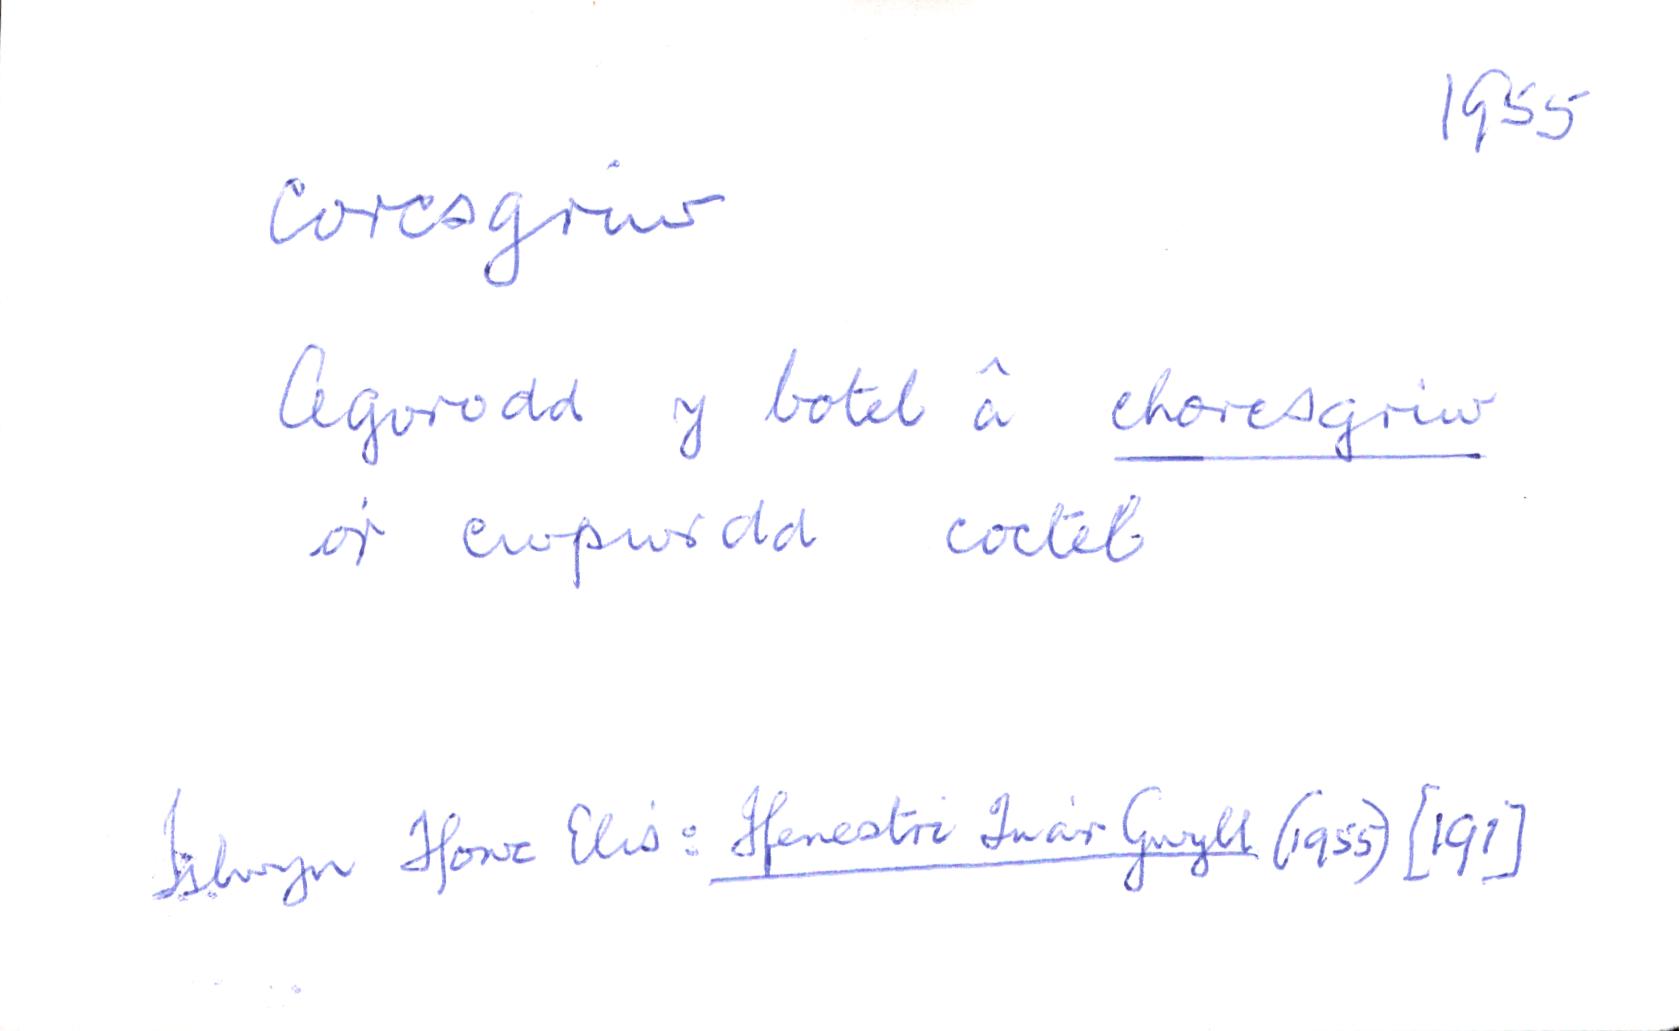 1955
corcsgriw
Agorodd y botel â chorcsgriw
o'r cwpwrdd coctel
Islwyn Ffowc Elis: Ffenestri Tua'r Gwyll (1955) [191]